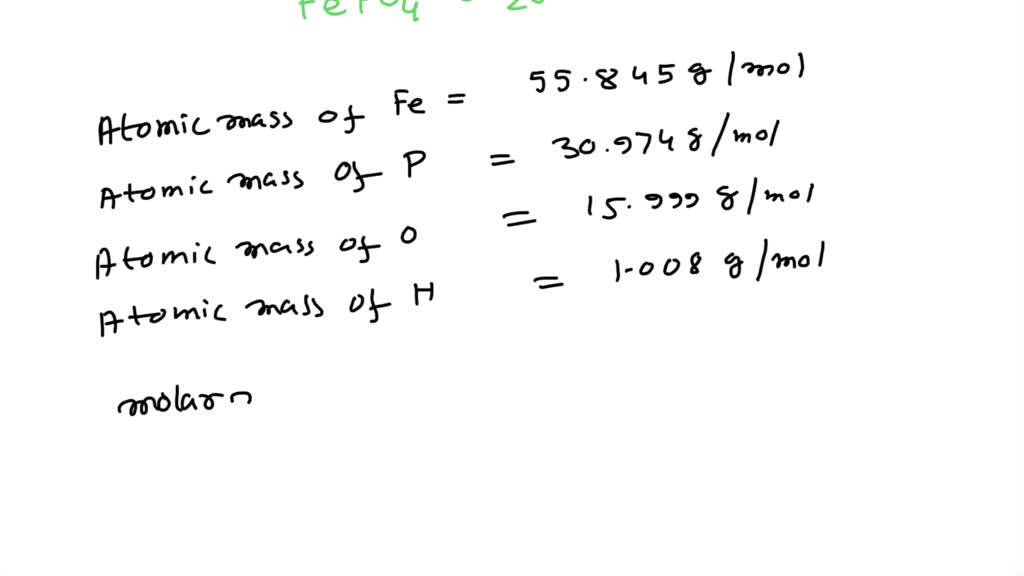 FePO4 · 2
Atomic mass of Fe = 55.845 g/mol
Atomic mass of P = 30.974 g/mol
Atomic mass of O = 15.999 g/mol
Atomic mass of H = 1.008 g/mol
molar